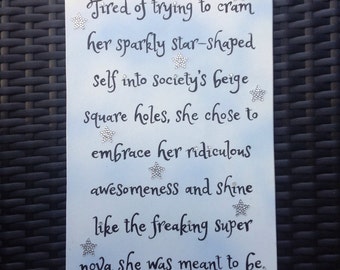 Tired of trying to cram
her sparkly star-shaped
self into society's beige
square holes, she chose to
embrace her ridiculous
awesomeness and shine
like the freaking super
nova she was meant to be.